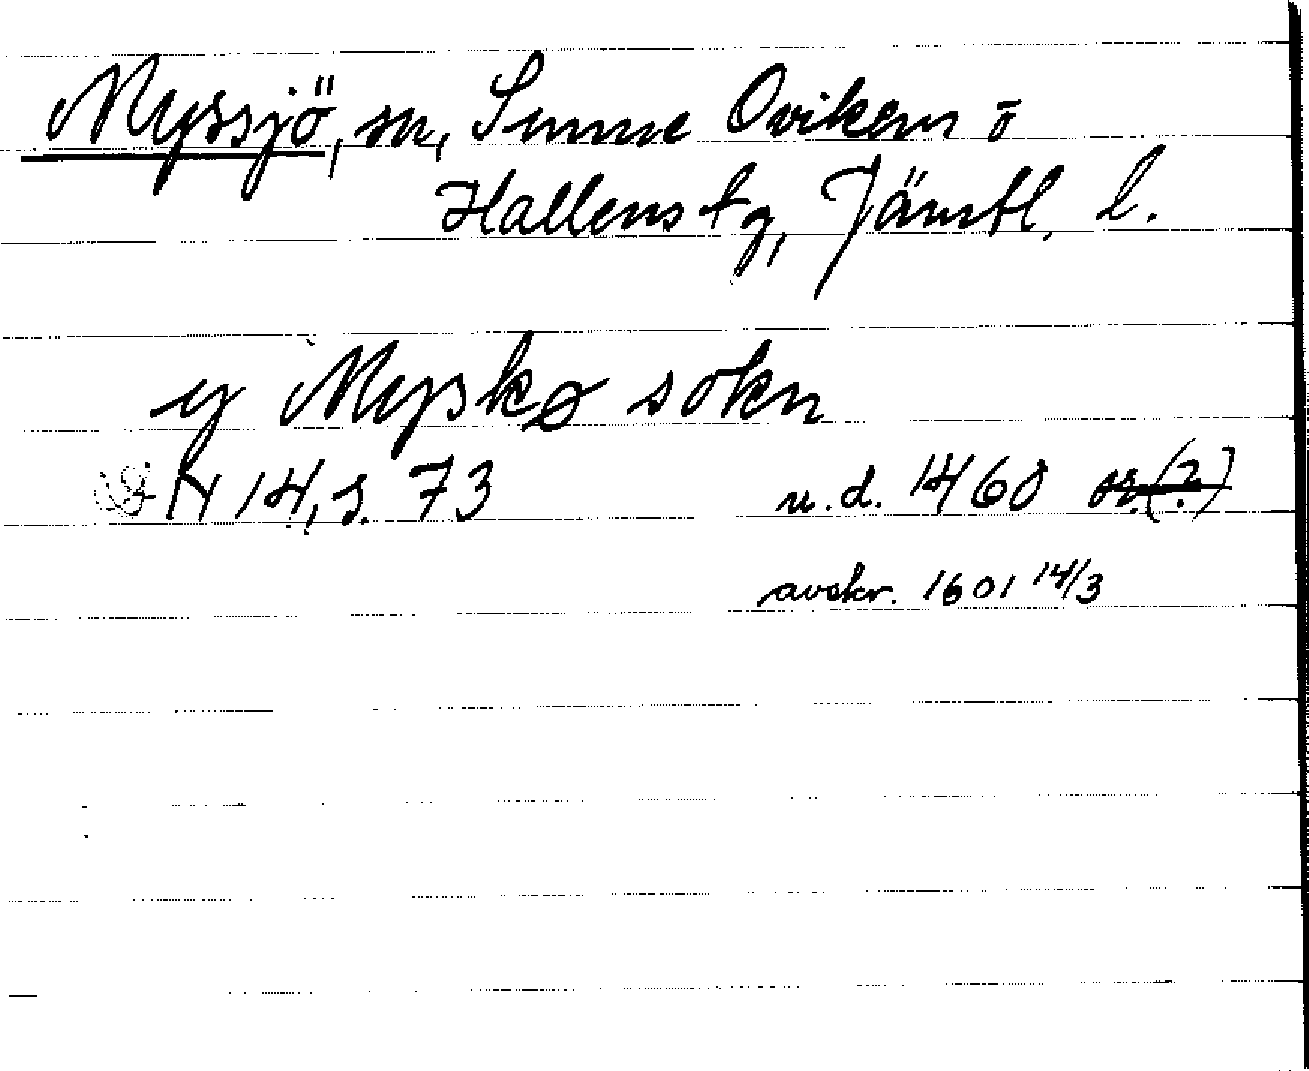 Myssjö, sn, Sunne Oviken o
Hallens tg, Jämtl. l.
y Myskø sokn
H 14, s. 73 u.d. 1460 or.(?)
avskr. 1601 14/3